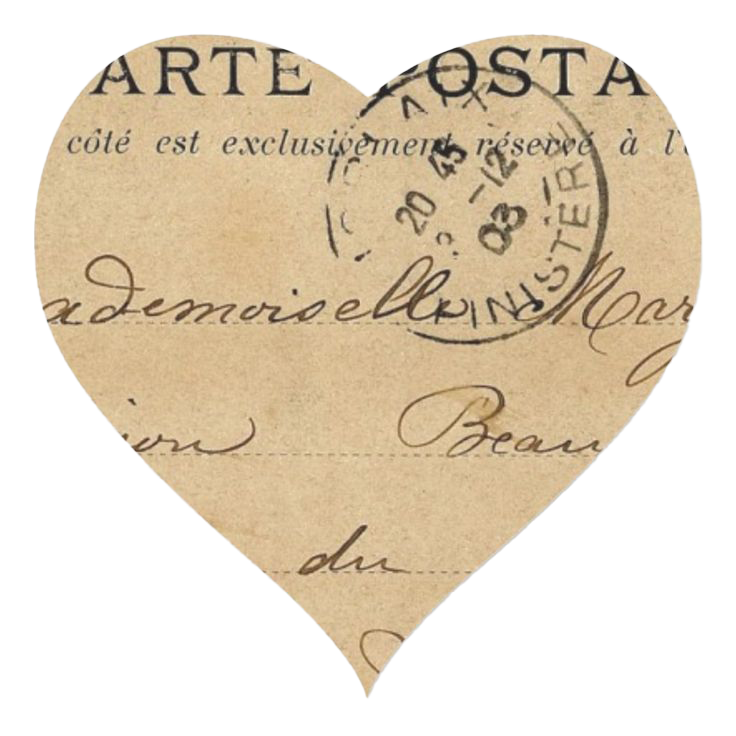 ARTE POSTA
côté est exclusivement réservé à l'
MORLAIX
20 45
-12
03
FINISTERE
ademoiselle Mar
ion Beau
du